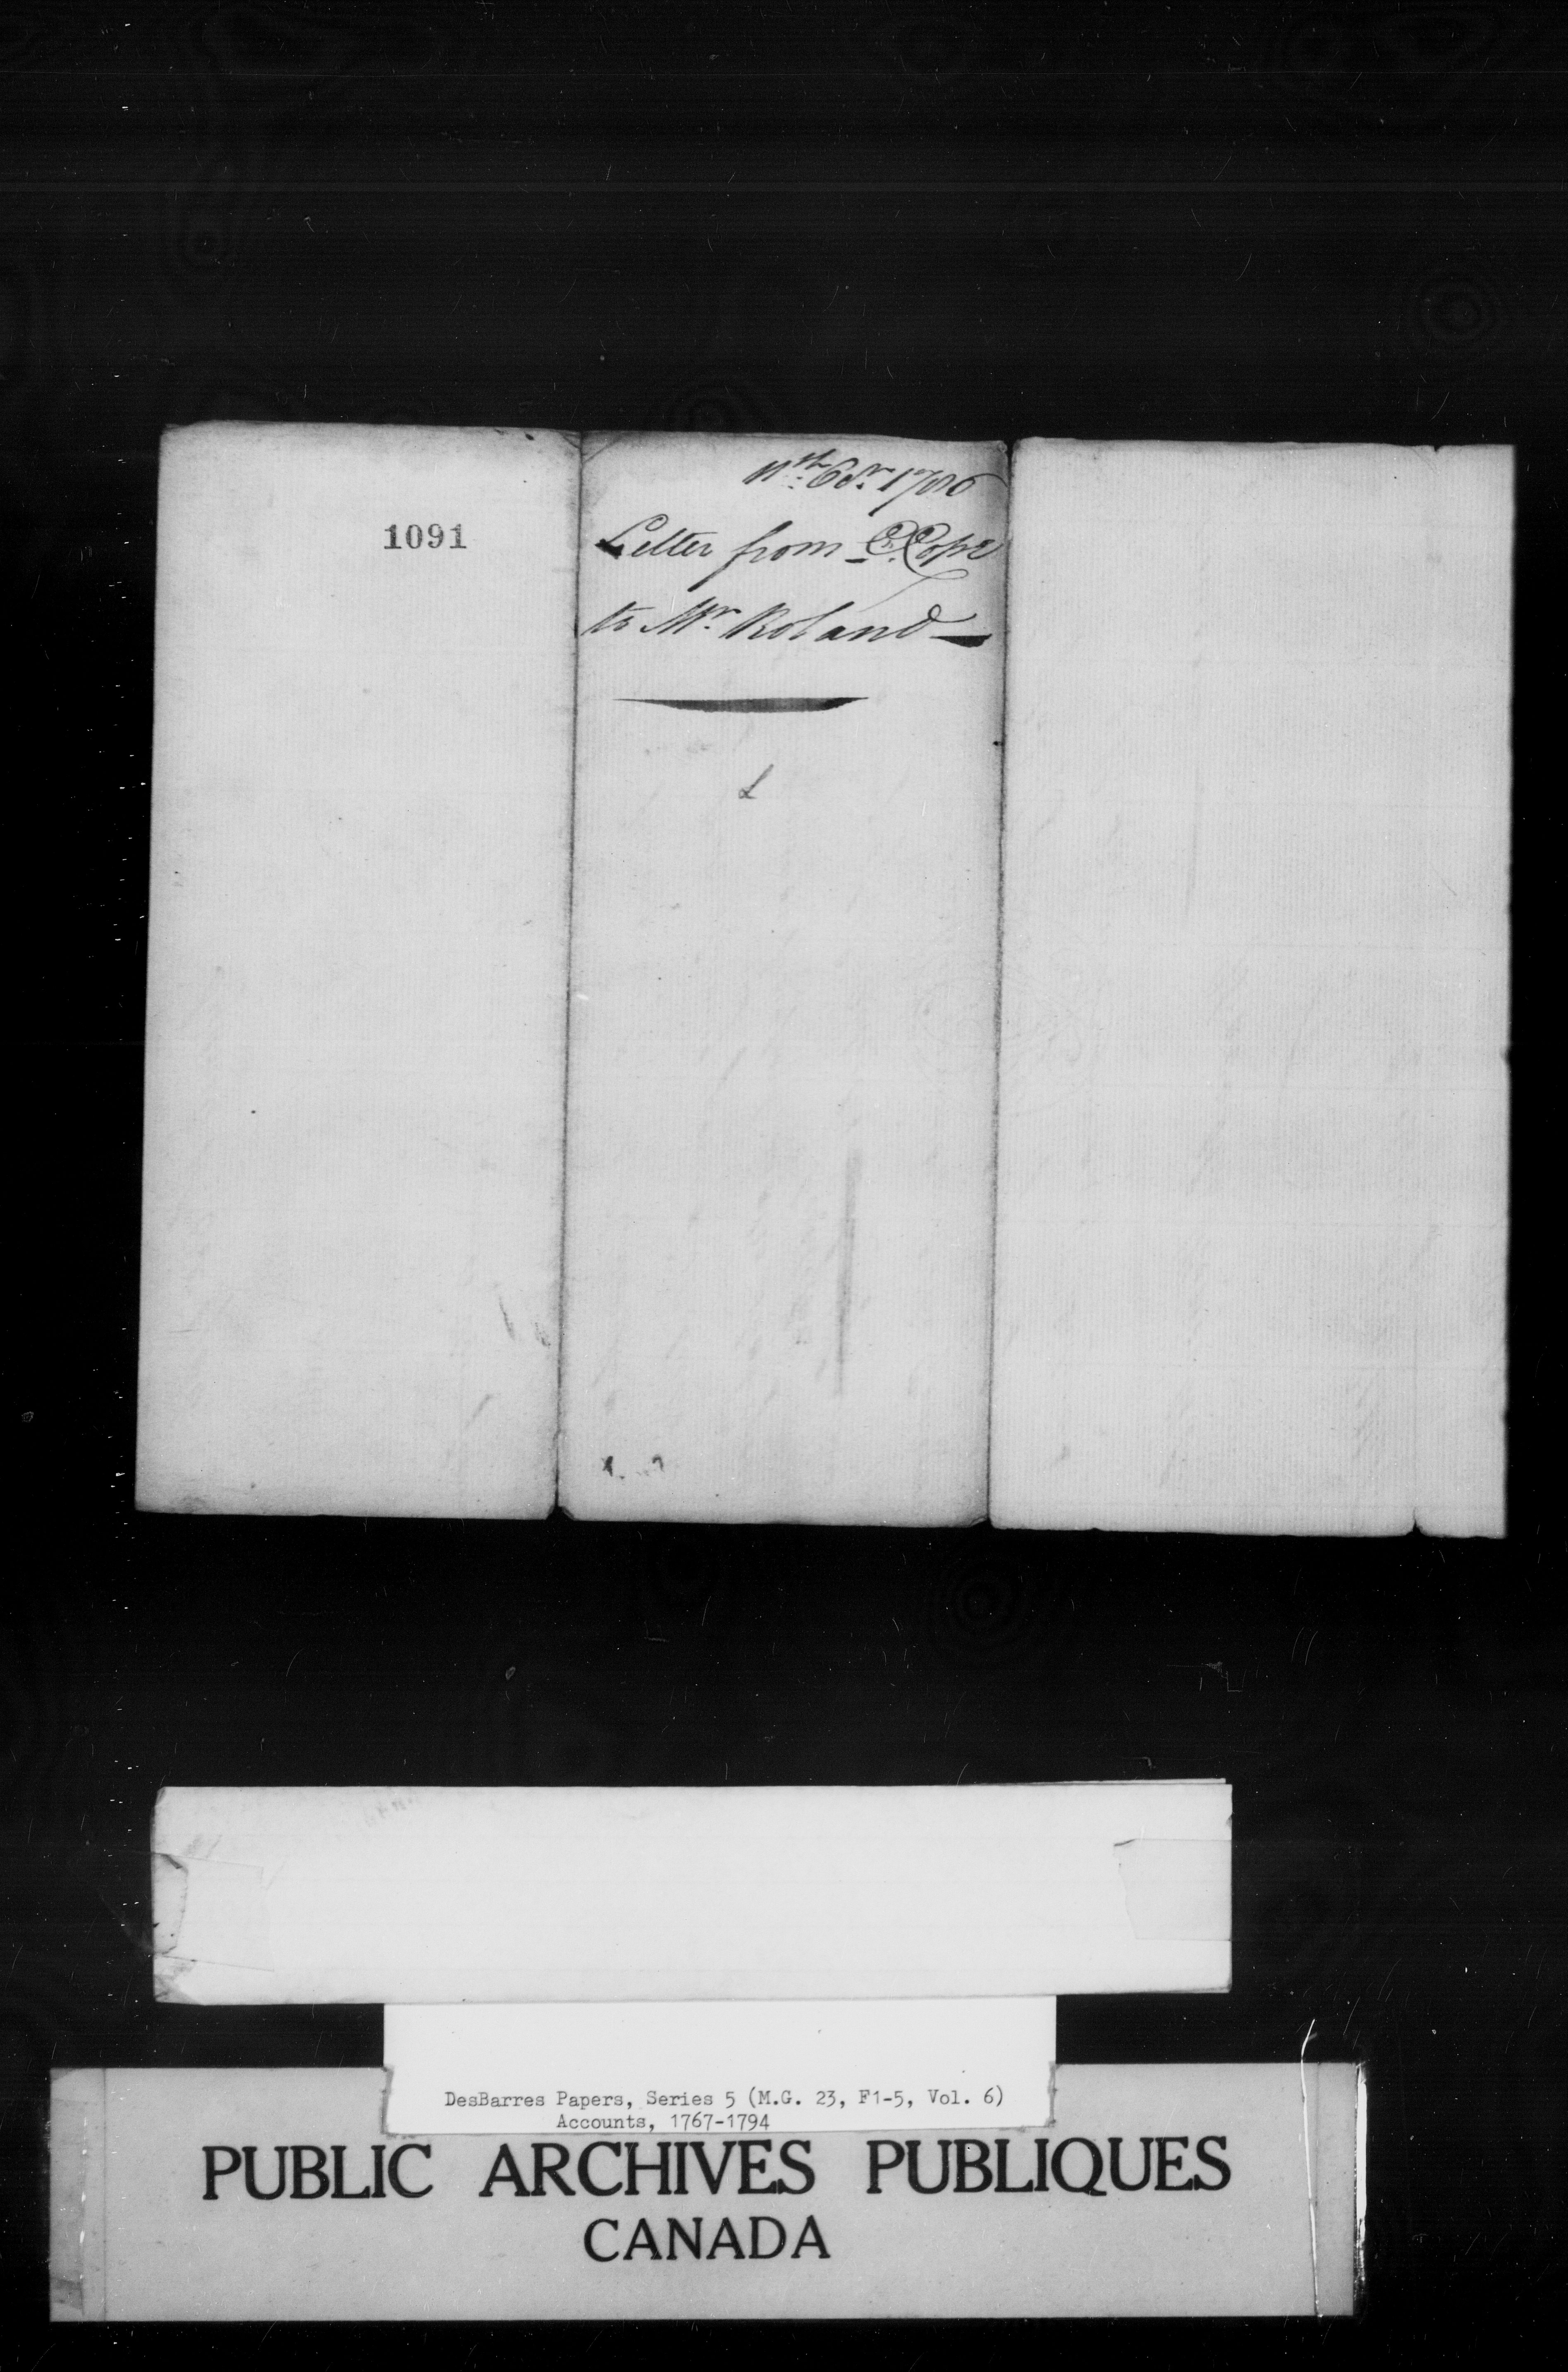 1091
11th 1786
Letter from C. Cope
to Mr. Roland
L
DesBarres Papers, Series 5 (M.G. 23, F1-5, Vol. 6)
Accounts, 1767-1794
PUBLIC ARCHIVES PUBLIQUES
CANADA